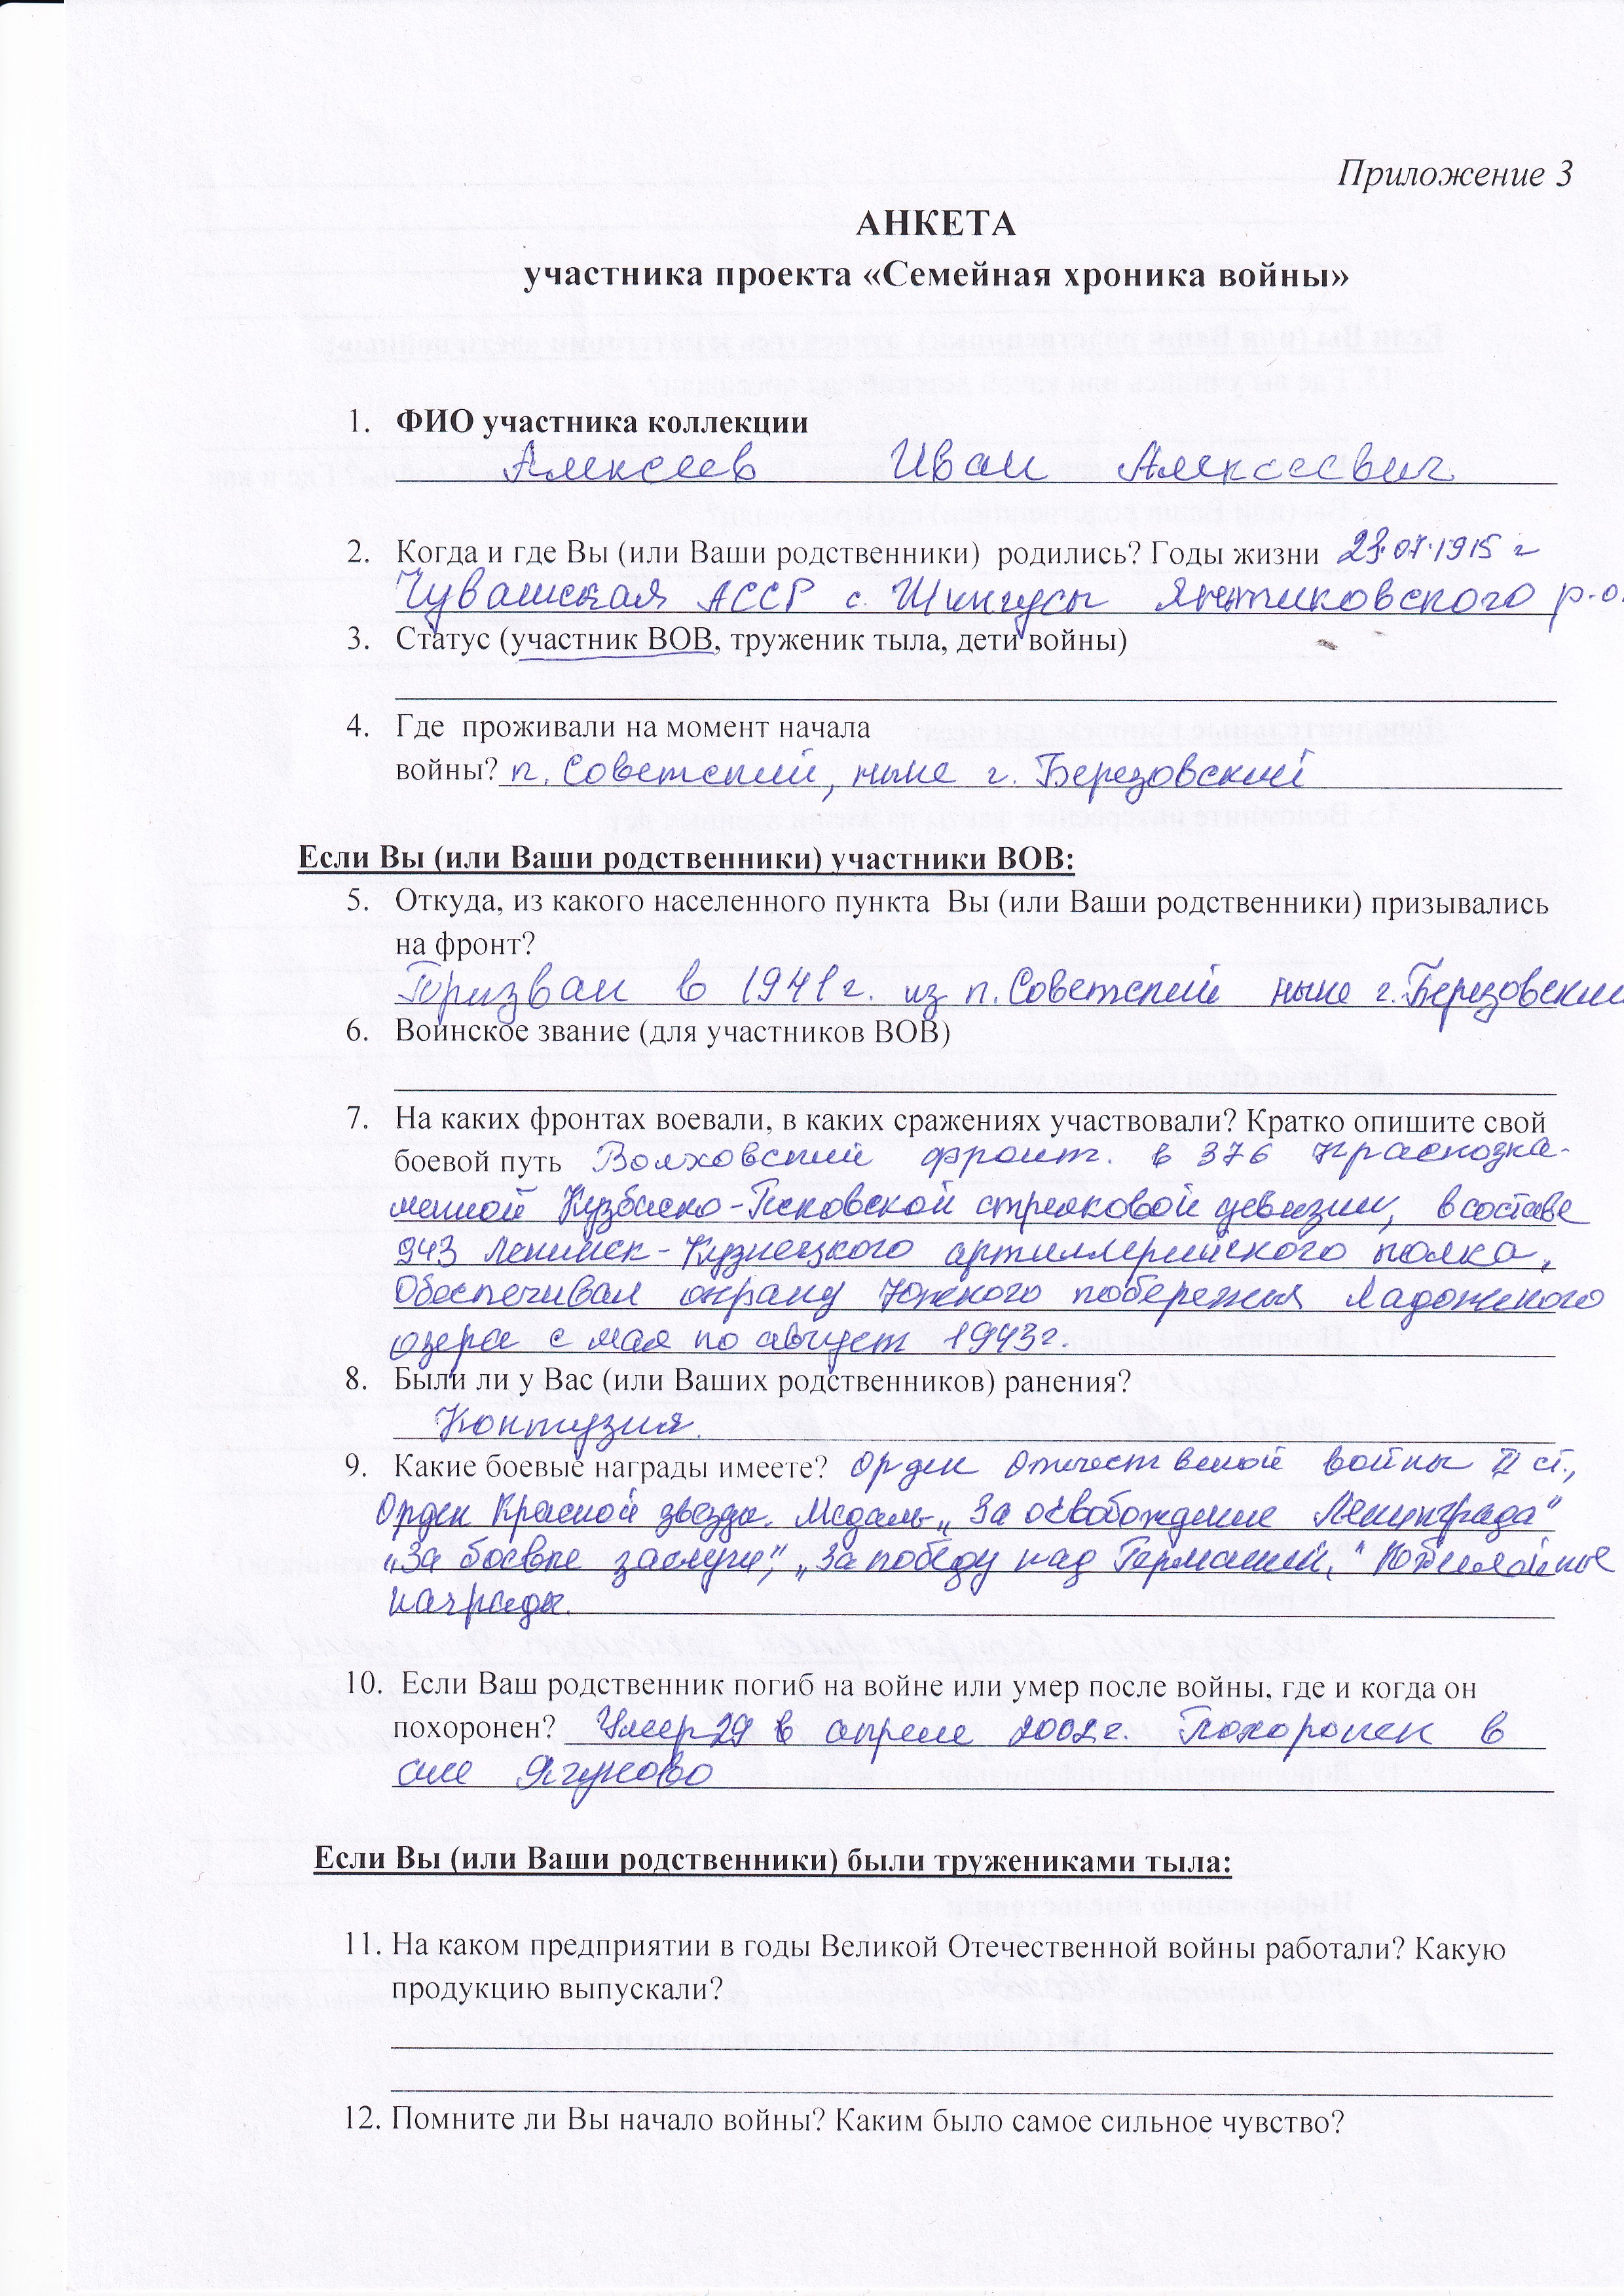 Приложение 3
АНКЕТА
участника проекта «Семейная хроника войны»
1. ФИО участника коллекции
Алексеев Иван Алексеевич
2. Когда и где Вы (или Ваши родственники) родились? Годы жизни 23.07.1915 г
Чувашская АССР с. Шингусы Янтиковского р-о
3. Статус (участник ВОВ, труженик тыла, дети войны)
4. Где проживали на момент начала
войны? п. Советский, ныне г. Березовский
Если Вы (или Ваши родственники) участники ВОВ:
5. Откуда, из какого населенного пункта Вы (или Ваши родственники) призывались
на фронт?
Призван в 1941 г. из п. Советский ныне г. Березовский
6. Воинское звание (для участников ВОВ)
7. На каких фронтах воевали, в каких сражениях участвовали? Кратко опишите свой
боевой путь Волховский фронт. в 376 Краснозна-
менной Кузбаско-Псковской стрелковой девизии, в составе
943 Ленинск-Кузнецкого артиллерийского полка,
Обеспечивал охрану Южного побережья Ладожского
озера с мая по август 1943 г.
8. Были ли у Вас (или Ваших родственников) ранения?
Контузия.
9. Какие боевые награды имеете? Орден Отечественой войны II ст.,
Орден Красной звезды. Медаль „За освобождение Ленинграда"
„За боевые заслуги", „За победу над Германией," Юбилейные
награды.
10. Если Ваш родственник погиб на войне или умер после войны, где и когда он
похоронен? Умер 29 в апреле 2002 г. Похоронен в
селе Ягуново
Если Вы (или Ваши родственники) были тружениками тыла:
11. На каком предприятии в годы Великой Отечественной войны работали? Какую
продукцию выпускали?
12. Помните ли Вы начало войны? Каким было самое сильное чувство?